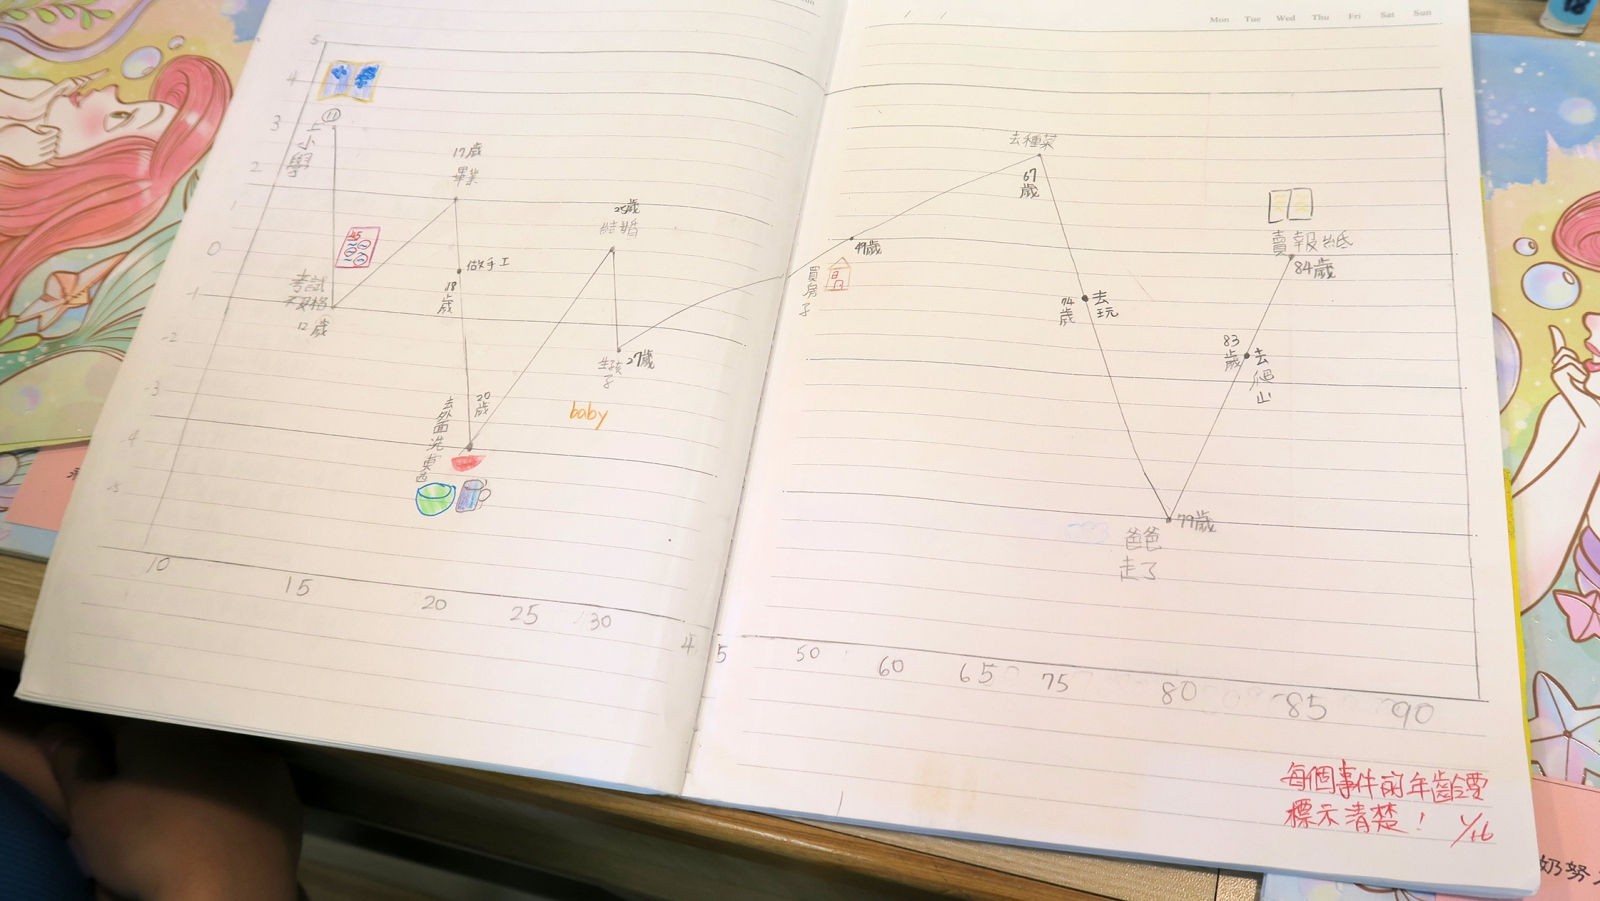 Mon Tue Wed Thu Fri Sat Sun
5
4
3
2
1
0
-1
-2
-3
-4
-5
11
上小學
45
考試
不及格
12歲
17歲
畢業
做手工
18歲
20歲
去外面洗東西
25歲
結婚
生孩子
27歲
baby
買房子
49歲
去種菜
67歲
74歲
去玩
79歲
爸爸
走了
83歲
去爬山
賣報紙
84歲
10 15 20 25 30 45 50 60 65 75 80 85 90
每個事件的年齡要
標示清楚！ 1/16
奶努